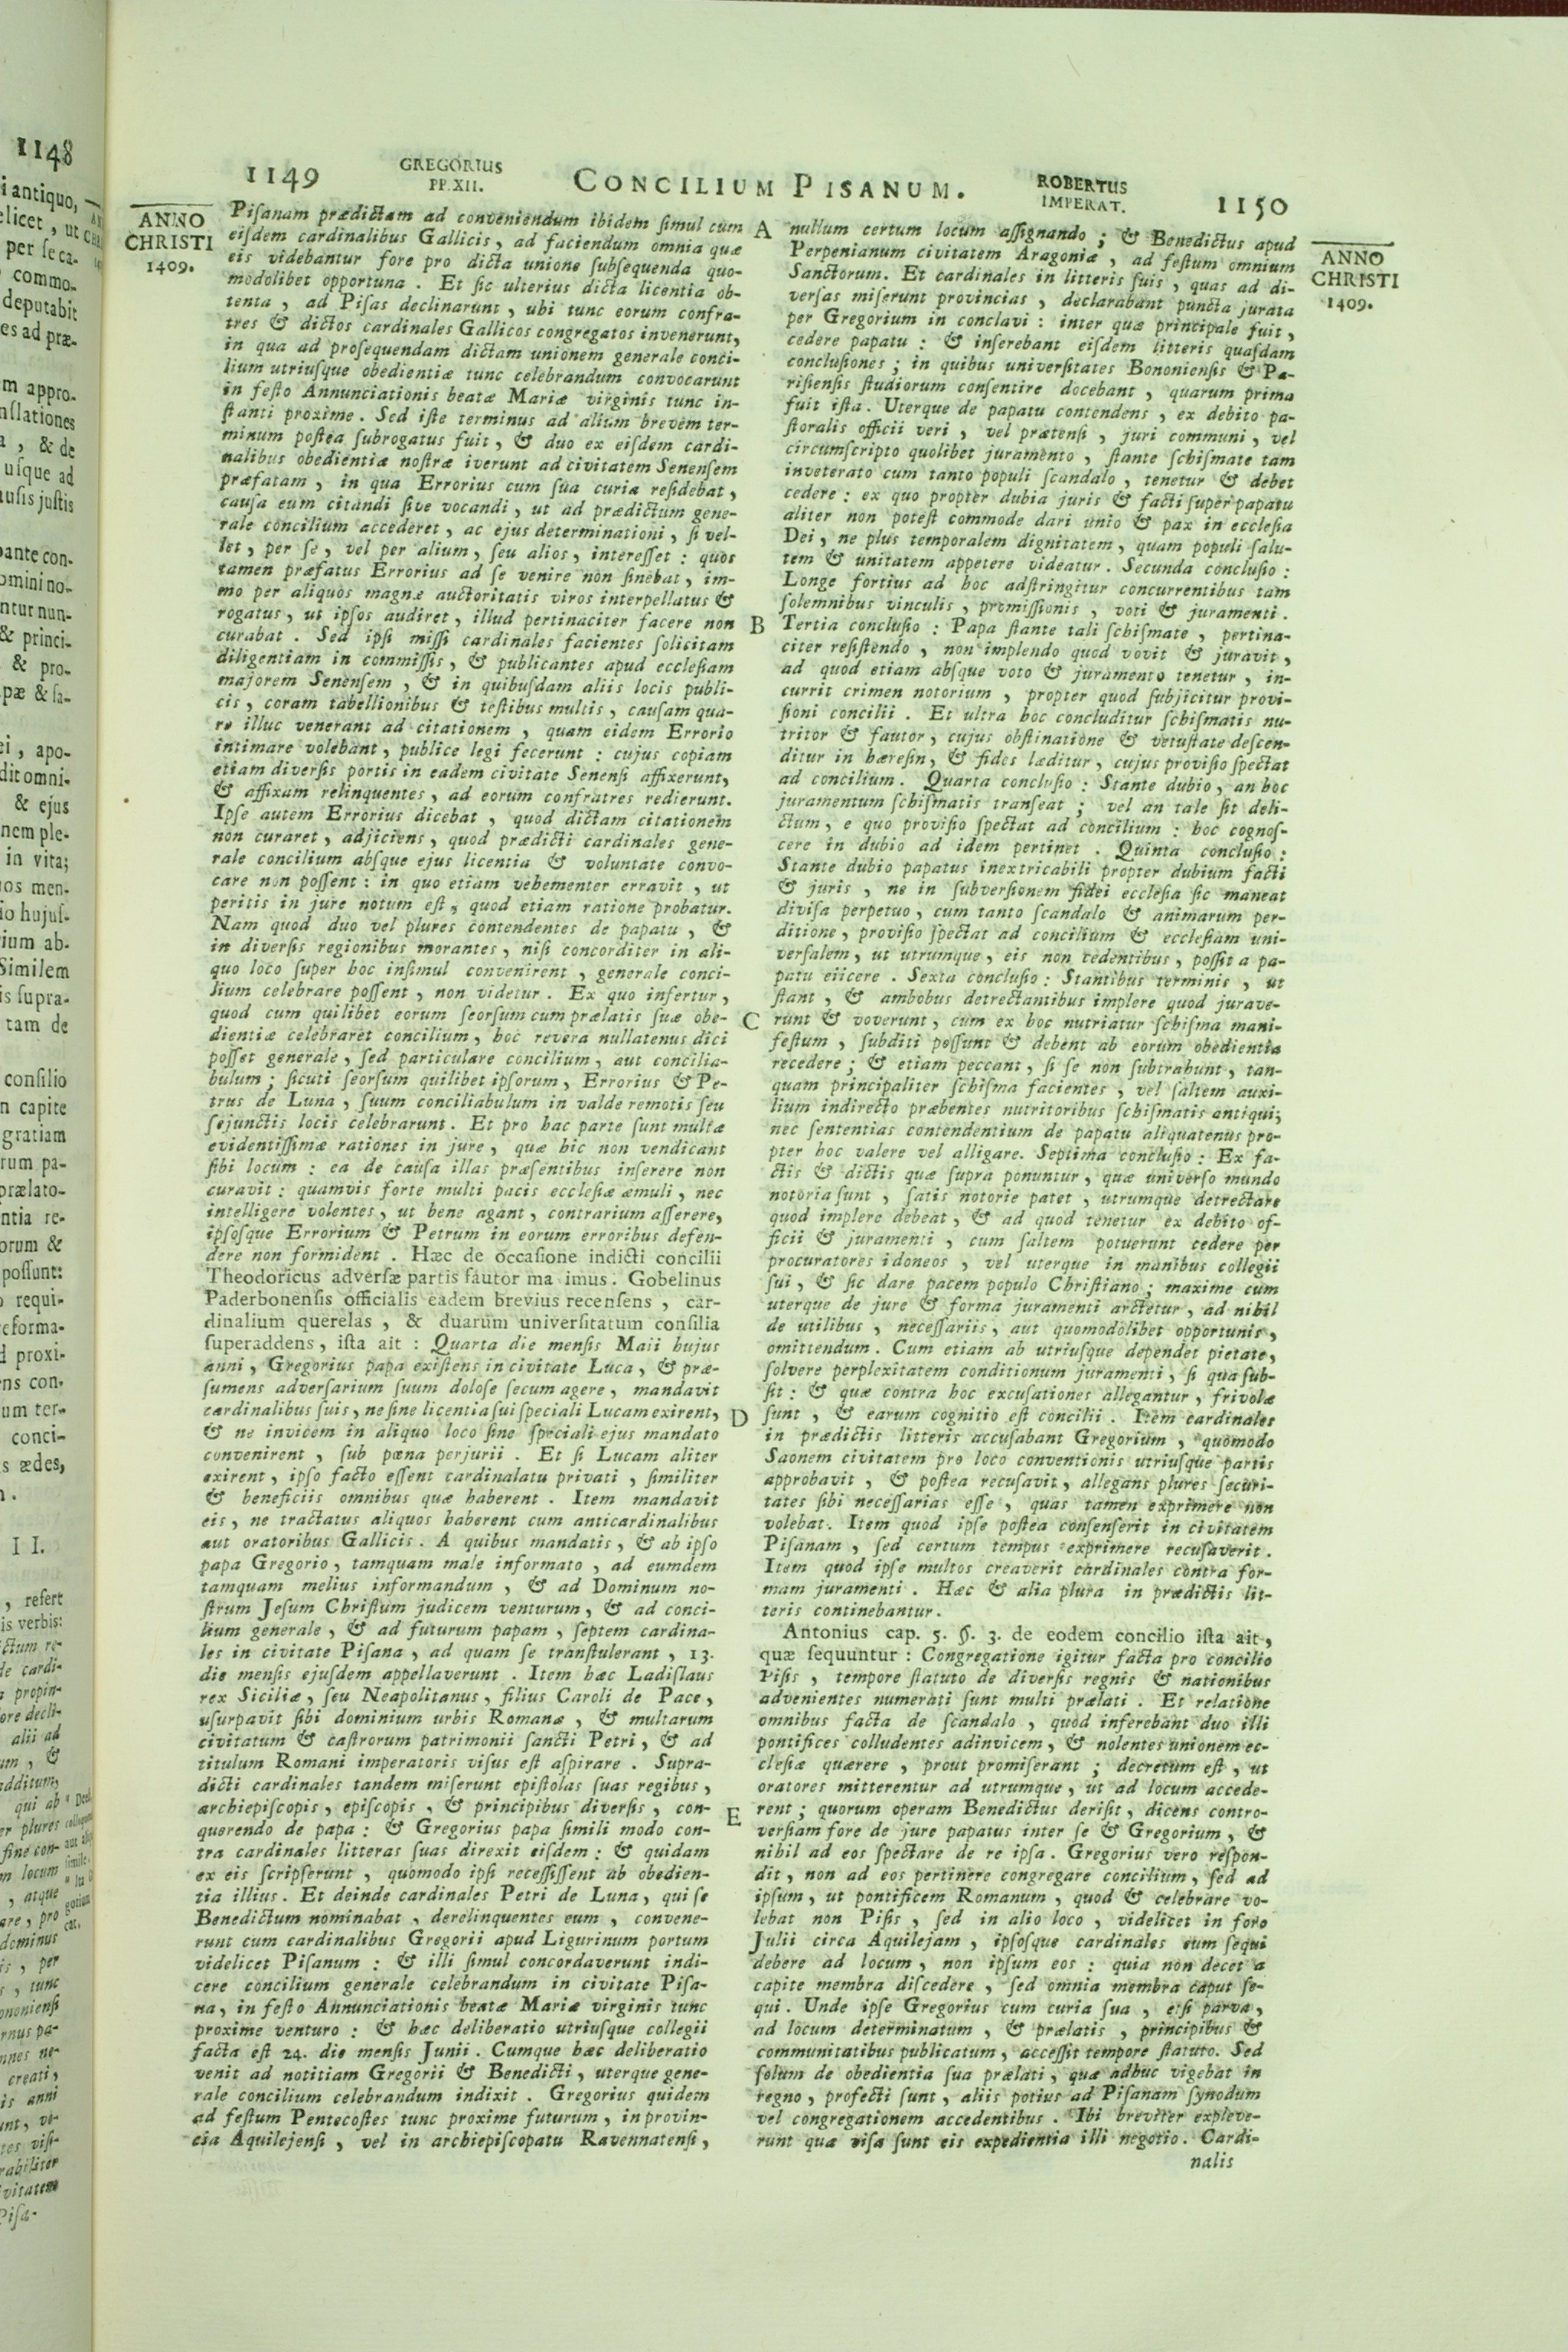 1149
GREGORIUS
PP. XII.
CONCILIUM PISANUM.
ROBERTUS
IMPERAT.
1150
ANNO
CHRISTI
1409.
Piſanam prædictam ad conveniendum ibidem ſimul cum
eiſdem cardinalibus Gallicis, ad faciendum omnia quæ
eis videbantur fore pro dicta unione ſubſequenda quo-
modolibet opportuna. Et ſic ulterius dicta licentia ob-
tenta, ad Piſas declinarunt, ubi tunc eorum confra-
tres & dictos cardinales Gallicos congregatos invenerunt,
in qua ad proſequendam dictam unionem generale conci-
lium utriuſque obedientiæ tunc celebrandum convocarunt
in feſto Annunciationis beatæ Mariæ virginis tunc in-
ſtanti proxime. Sed iſte terminus ad alium brevem ter-
minum poſtea ſubrogatus fuit, & duo ex eiſdem cardi-
nalibus obedientiæ noſtræ iverunt ad civitatem Senenſem
præfatam, in qua Errorius cum ſua curia reſidebat,
cauſa eum citandi ſive vocandi, ut ad prædictum gene-
rale concilium accederet, ac ejus determinationi, ſi vel-
let, per ſe, vel per alium, ſeu alios, intereſſet: quos
tamen præfatus Errorius ad ſe venire non ſinebat, im-
mo per aliquos magnæ auctoritatis viros interpellatus &
rogatus, ut ipſos audiret, illud pertinaciter facere non
curabat. Sed ipſi miſſi cardinales facientes ſolicitam
diligentiam in commiſſis, & publicantes apud eccleſiam
majorem Senenſem, & in quibuſdam aliis locis publi-
cis, coram tabellionibus & teſtibus multis, cauſam qua-
re illuc venerant ad citationem, quam eidem Errorio
intimare volebant, publice legi fecerunt: cujus copiam
etiam diverſis portis in eadem civitate Senenſi affixerunt,
& affixam relinquentes, ad eorum confratres redierunt.
Ipſe autem Errorius dicebat, quod dictam citationem
non curaret, adjiciens, quod prædicti cardinales gene-
rale concilium abſque ejus licentia & voluntate convo-
care non poſſent: in quo etiam vehementer erravit, ut
peritis in jure notum eſt, quod etiam ratione probatur.
Nam quod duo vel plures contendentes de papatu, &
in diverſis regionibus morantes, niſi concorditer in ali-
quo loco ſuper hoc inſimul convenirent, generale conci-
lium celebrare poſſent, non videtur. Ex quo infertur,
quod cum quilibet eorum ſeorſum cum prælatis ſuæ obe-
dientiæ celebraret concilium, hoc revera nullatenus dici
poſſet generale, ſed particulare concilium, aut concilia-
bulum; ſicuti ſeorſum quilibet ipſorum, Errorius & Pe-
trus de Luna, ſuum conciliabulum in valde remotis ſeu
ſejunctis locis celebrarunt. Et pro hac parte ſunt multæ
evidentiſſimæ rationes in jure, quæ hic non vendicant
ſibi locum: ea de cauſa illas præſentibus inſerere non
curavit: quamvis forte multi pacis eccleſiæ æmuli, nec
intelligere volentes, ut bene agant, contrarium aſſerere,
ipſoſque Errorium & Petrum in eorum erroribus defen-
dere non formident. Hæc de occaſione indicti concilii
Theodoricus adverſæ partis fautor ma imus. Gobelinus
Paderbonenſis officialis eadem brevius recenſens, car-
dinalium querelas, & duarum univerſitatum conſilia
ſuperaddens, iſta ait: Quarta die menſis Maii hujus
anni, Gregorius papa exiſtens in civitate Luca, & præ-
ſumens adverſarium ſuum doloſe ſecum agere, mandavit
cardinalibus ſuis, ne ſine licentia ſui ſpeciali Lucam exirent,
& ne invicem in aliquo loco ſine ſpeciali ejus mandato
convenirent, ſub pœna perjurii. Et ſi Lucam aliter
exirent, ipſo facto eſſent cardinalatu privati, ſimiliter
& beneficiis omnibus quæ haberent. Item mandavit
eis, ne tractatus aliquos haberent cum anticardinalibus
aut oratoribus Gallicis. A quibus mandatis, & ab ipſo
papa Gregorio, tamquam male informato, ad eumdem
tamquam melius informandum, & ad Dominum no-
ſtrum Jeſum Chriſtum judicem venturum, & ad conci-
lium generale, & ad futurum papam, ſeptem cardina-
les in civitate Piſana, ad quam ſe tranſtulerant, 13.
die menſis ejuſdem appellaverunt. Item hæc Ladiſlaus
rex Siciliæ, ſeu Neapolitanus, filius Caroli de Pace,
uſurpavit ſibi dominium urbis Romanæ, & multarum
civitatum & caſtrorum patrimonii ſancti Petri, & ad
titulum Romani imperatoris viſus eſt aſpirare. Supra-
dicti cardinales tandem miſerunt epiſtolas ſuas regibus,
archiepiſcopis, epiſcopis, & principibus diverſis, con-
querendo de papa: & Gregorius papa ſimili modo con-
tra cardinales litteras ſuas direxit eiſdem: & quidam
ex eis ſcripſerunt, quomodo ipſi receſſiſſent ab obedien-
tia illius. Et deinde cardinales Petri de Luna, qui ſe
Benedictum nominabat, derelinquentes eum, convene-
runt cum cardinalibus Gregorii apud Ligurinum portum
videlicet Piſanum: & illi ſimul concordaverunt indi-
cere concilium generale celebrandum in civitate Piſa-
na, in feſto Annunciationis beatæ Mariæ virginis tunc
proxime venturo: & hæc deliberatio utriuſque collegii
facta eſt 24. die menſis Junii. Cumque hæc deliberatio
venit ad notitiam Gregorii & Benedicti, uterque gene-
rale concilium celebrandum indixit. Gregorius quidem
ad feſtum Pentecoſtes tunc proxime futurum, in provin-
cia Aquilejenſi, vel in archiepiſcopatu Ravennatenſi,
A
B
C
D
E
nullum certum locum aſſignando; & Benedictus apud
Perpenianum civitatem Aragoniæ, ad feſtum omnium
Sanctorum. Et cardinales in litteris ſuis, quas ad di-
verſas miſerunt provincias, declarabant puncta jurata
per Gregorium in conclavi: inter quæ principale fuit,
cedere papatu: & inſerebant eiſdem litteris quaſdam
concluſiones; in quibus univerſitates Bononienſis & Pa-
riſienſis ſtudiorum conſentire docebant, quarum prima
fuit iſta. Uterque de papatu contendens, ex debito pa-
ſtoralis officii veri, vel prætenſi, juri communi, vel
circumſcripto quolibet juramento, ſtante ſchiſmate tam
inveterato cum tanto populi ſcandalo, tenetur & debet
cedere: ex quo propter dubia juris & facti ſuper papatu
aliter non poteſt commode dari unio & pax in eccleſia
Dei, ne plus temporalem dignitatem, quam populi ſalu-
tem & unitatem appetere videatur. Secunda concluſio:
Longe fortius ad hoc adſtringitur concurrentibus tam
ſolemnibus vinculis, promiſſionis, voti & juramenti.
Tertia concluſio: Papa ſtante tali ſchiſmate, pertina-
citer reſiſtendo, non implendo quod vovit & juravit,
ad quod etiam abſque voto & juramento tenetur, in-
currit crimen notorium, propter quod ſubjicitur provi-
ſioni concilii. Et ultra hoc concluditur ſchiſmatis nu-
tritor & fautor, cujus obſtinatione & vetuſtate deſcen-
ditur in hæreſin, & fides læditur, cujus proviſio ſpectat
ad concilium. Quarta concluſio: Stante dubio, an hoc
juramentum ſchiſmatis tranſeat; vel an tale ſit deli-
ctum, e quo proviſio ſpectat ad concilium: hoc cognoſ-
cere in dubio ad idem pertinet. Quinta concluſio:
Stante dubio papatus inextricabili propter dubium facti
& juris, ne in ſubverſionem fidei eccleſia ſic maneat
diviſa perpetuo, cum tanto ſcandalo & animarum per-
ditione, proviſio ſpectat ad concilium & eccleſiam uni-
verſalem, ut utrumque, eis non cedentibus, poſſit a pa-
patu eiicere. Sexta concluſio: Stantibus terminis, ut
ſtant, & ambobus detrectantibus implere quod jurave-
runt & voverunt, cum ex hoc nutriatur ſchiſma mani-
feſtum, ſubditi poſſunt & debent ab eorum obedientia
recedere; & etiam peccant, ſi ſe non ſubtrahunt, tan-
quam principaliter ſchiſma facientes, vel ſaltem auxi-
lium indirecto præbentes nutritoribus ſchiſmatis antiqui;
nec ſententias contendentium de papatu aliquatenus pro-
pter hoc valere vel alligare. Septima concluſio: Ex fa-
ctis & dictis quæ ſupra ponuntur, quæ univerſo mundo
notoria ſunt, ſatis notorie patet, utrumque detrectare
quod implere debeat, & ad quod tenetur ex debito of-
ficii & juramenti, cum ſaltem potuerunt cedere per
procuratores idoneos, vel uterque in manibus collegii
ſui, & ſic dare pacem populo Chriſtiano; maxime cum
uterque de jure & forma juramenti arctetur, ad nihil
de utilibus, neceſſariis, aut quomodolibet opportunis,
omittendum. Cum etiam ab utriuſque dependet pietate,
ſolvere perplexitatem conditionum juramenti, ſi qua ſub-
ſit: & quæ contra hoc excuſationes allegantur, frivolæ
ſunt, & earum cognitio eſt concilii. Item cardinales
in prædictis litteris accuſabant Gregorium, quomodo
Saonem civitatem pro loco conventionis utriuſque partis
approbavit, & poſtea recuſavit, allegans plures ſecuri-
tates ſibi neceſſarias eſſe, quas tamen exprimere non
volebat. Item quod ipſe poſtea conſenſerit in civitatem
Piſanam, ſed certum tempus exprimere recuſaverit.
Item quod ipſe multos creaverit cardinales contra for-
mam juramenti. Hæc & alia plura in prædictis lit-
teris continebantur.
Antonius cap. 5. §. 3. de eodem concilio iſta ait,
quæ ſequuntur: Congregatione igitur facta pro concilio
Piſis, tempore ſtatuto de diverſis regnis & nationibus
advenientes numerati ſunt multi prælati. Et relatione
omnibus facta de ſcandalo, quod inferebant duo illi
pontifices colludentes adinvicem, & nolentes unionem ec-
cleſiæ quærere, prout promiſerant; decretum eſt, ut
oratores mitterentur ad utrumque, ut ad locum accede-
rent; quorum operam Benedictus deriſit, dicens contro-
verſiam fore de jure papatus inter ſe & Gregorium, &
nihil ad eos ſpectare de re ipſa. Gregorius vero reſpon-
dit, non ad eos pertinere congregare concilium, ſed ad
ipſum, ut pontificem Romanum, quod & celebrare vo-
lebat non Piſis, ſed in alio loco, videlicet in foro
Julii circa Aquilejam, ipſoſque cardinales eum ſequi
debere ad locum, non ipſum eos: quia non decet a
capite membra diſcedere, ſed omnia membra caput ſe-
qui. Unde ipſe Gregorius cum curia ſua, etſi parva,
ad locum determinatum, & prælatis, principibus &
communitatibus publicatum, acceſſit tempore ſtatuto. Sed
ſolum de obedientia ſua prælati, quæ adhuc vigebat in
regno, profecti ſunt, aliis potius ad Piſanam ſynodum
vel congregationem accedentibus. Ibi breviter expleve-
runt quæ viſa ſunt eis expedientia illi negotio. Cardi-
nalis
ANNO
CHRISTI
1409.
1148